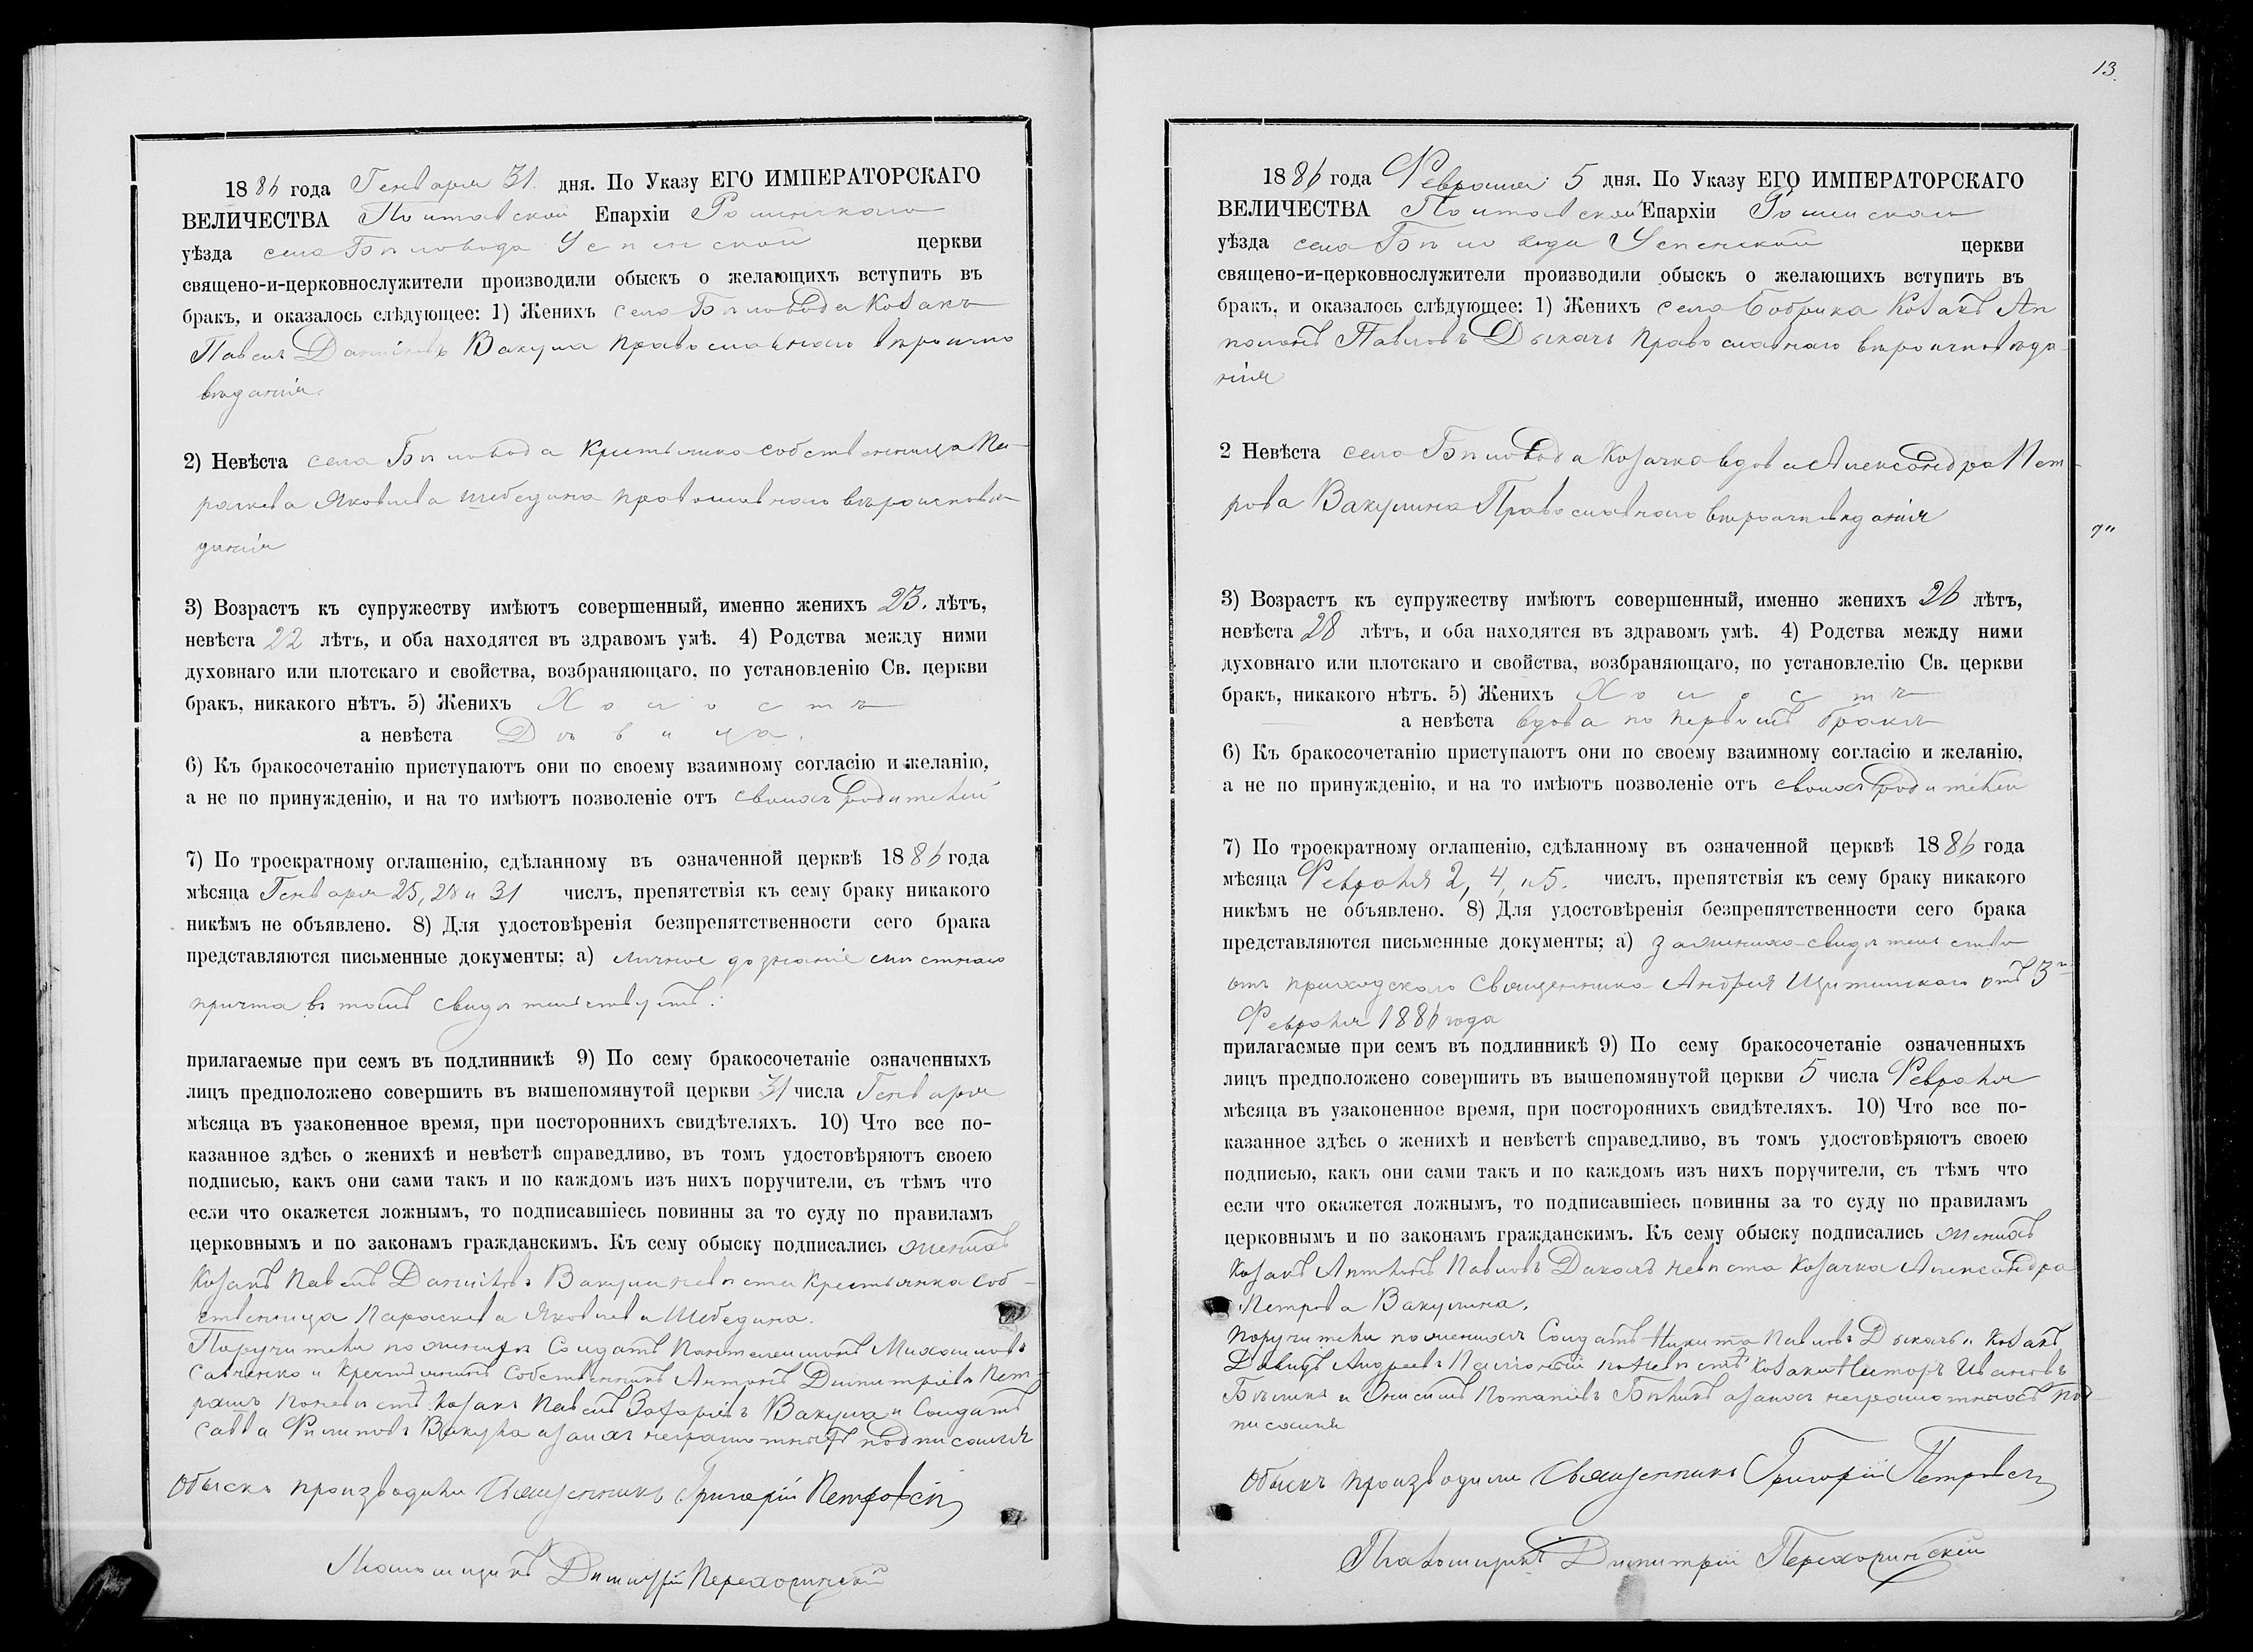 1886 года Генваря 31. дня. По Указу ЕГО ИМПЕРАТОРСКАГО
ВЕЛИЧЕСТВА Полтавской Епархіи Роменскаго
уѣзда села Бѣловода Успенской церкви
священо-и-церковнослужители производили обыскъ о желающихъ вступить въ
бракъ, и оказалось слѣдующее: 1) Женихъ села Бѣловода Козакъ
Павелъ Даніиловъ Вакула православнаго вѣроиспо
вѣданія.
2) Невѣста села Бѣловода Крестьянка собственница Па-
раскева Яковлева Шебедина православнаго вѣроисповѣ-
данія
3) Возрастъ къ супружеству имѣютъ совершенный, именно женихъ 23. лѣтъ,
невѣста 22 лѣтъ, и оба находятся въ здравомъ умѣ. 4) Родства между ними
духовнаго или плотскаго и свойства, возбраняющаго, по установленію Св. церкви
бракъ, никакого нѣтъ. 5) Женихъ Холостъ
а невѣста Дѣвица.
6) Къ бракосочетанію приступаютъ они по своему взаимному согласію и желанію,
а не по принужденію, и на то имѣютъ позволеніе отъ своихъ родителей
7) По троекратному оглашенію, сдѣланному въ означенной церквѣ 1886 года
мѣсяца Генваря 25, 28 и 31 числъ, препятствія къ сему браку никакого
никѣмъ не объявлено. 8) Для удостовѣренія безпрепятственности сего брака
представляются письменные документы; а) личное дознаніе мѣстнаго
причта въ томъ свидѣтельствуетъ.
прилагаемые при семъ въ подлинникѣ 9) По сему бракосочетаніе означенныхъ
лицъ предположено совершить въ вышепомянутой церкви 31 числа Генваря
мѣсяца въ узаконенное время, при постороннихъ свидѣтеляхъ. 10) Что все по-
казанное здѣсь о женихѣ и невѣстѣ справедливо, въ томъ удостовѣряютъ своею
подписью, какъ они сами такъ и по каждомъ изъ нихъ поручители, съ тѣмъ что
если что окажется ложнымъ, то подписавшіесь повинны за то суду по правиламъ
церковнымъ и по законамъ гражданскимъ. Къ сему обыску подписались женихъ
Козакъ Павелъ Даніиловъ Вакула невѣста Крестьянка соб-
ственница Параскева Яковлева Шебедина.
Поручители по женихѣ Солдатъ Пантелеимонъ Михаиловъ
Савченко и Крестьянинъ Собственникъ Антонъ Димитріевъ Пет-
рашъ по невѣстѣ Козакъ Павелъ Захаріевъ Вакула и Солдатъ
Савва Филиповъ Вакула а за ихъ неграмотныхъ подписался
Обыскъ производили Священникъ Григорій Петровскій
Псаломщикъ Димитрій
13.
1886 года Февраля 5 дня. По Указу ЕГО ИМПЕРАТОРСКАГО
ВЕЛИЧЕСТВА Полтавской Епархіи Роменскаго
уѣзда села Бѣловода Успенской церкви
священо-и-церковнослужители производили обыскъ о желающихъ вступить въ
бракъ, и оказалось слѣдующее: 1) Женихъ села Бобрика Козакъ Ап
полонъ Павловъ Дыкачъ православнаго вѣроисповѣда
нія
2 Невѣста села Бѣловода Козачка вдова Александра Пет-
рова Вакулина Православнаго вѣроисповѣданія
3) Возрастъ къ супружеству имѣютъ совершенный, именно женихъ 26 лѣтъ,
невѣста 28 лѣтъ, и оба находятся въ здравомъ умѣ. 4) Родства между ними
духовнаго или плотскаго и свойства, возбраняющаго, по установлелію Св. церкви
бракъ, никакого нѣтъ. 5) Женихъ Холостъ
а невѣста вдова по первомъ бракѣ
6) Къ бракосочетанію приступаютъ они по своему взаимному согласію и желанію,
а не по принужденію, и на то имѣютъ позволеніе отъ своихъ родителей
7) По троекратному оглашенію, сдѣланному въ означенной церквѣ 1886 года
мѣсяца Февраля 2, 4, и 5. числъ, препятствія къ сему браку никакого
никѣмъ не объявлено. 8) Для удостовѣренія безпрепятственности сего брака
представляются письменные документы; а) за жениха свидѣтельство
отъ приходскаго Священника Андрея отъ 3го
Февраля 1886 года
прилагаемые при семъ въ подлинникѣ 9) По сему бракосочетаніе означенныхъ
лицъ предположено совершить въ вышепомянутой церкви 5 числа Февраля
мѣсяца въ узаконенное время, при постороннихъ свидѣтеляхъ. 10) Что все по-
казанное здѣсь о женихѣ и невѣстѣ справедливо, въ томъ удостовѣряютъ своею
подписью, какъ они сами такъ и по каждомъ изъ нихъ поручители, съ тѣмъ что
если что окажется ложнымъ, то подписавшіесь повинны за то суду по правиламъ
церковнымъ и по законамъ гражданскимъ. Къ сему обыску подписались женихъ
Козакъ Павловъ Дыкачъ невѣста Козачка Александра
Петрова Вакулина.
Поручители по женихѣ Солдатъ Никита Павловъ Дыкачъ и Козакъ
Давидъ Андреевъ по невѣстѣ Козаки Ивановъ
и Онисимъ Потапіевъ а за ихъ неграмотныхъ под-
писался
Обыскъ производили Священникъ Григорій Петровскій
Псаломщикъ Димитрій